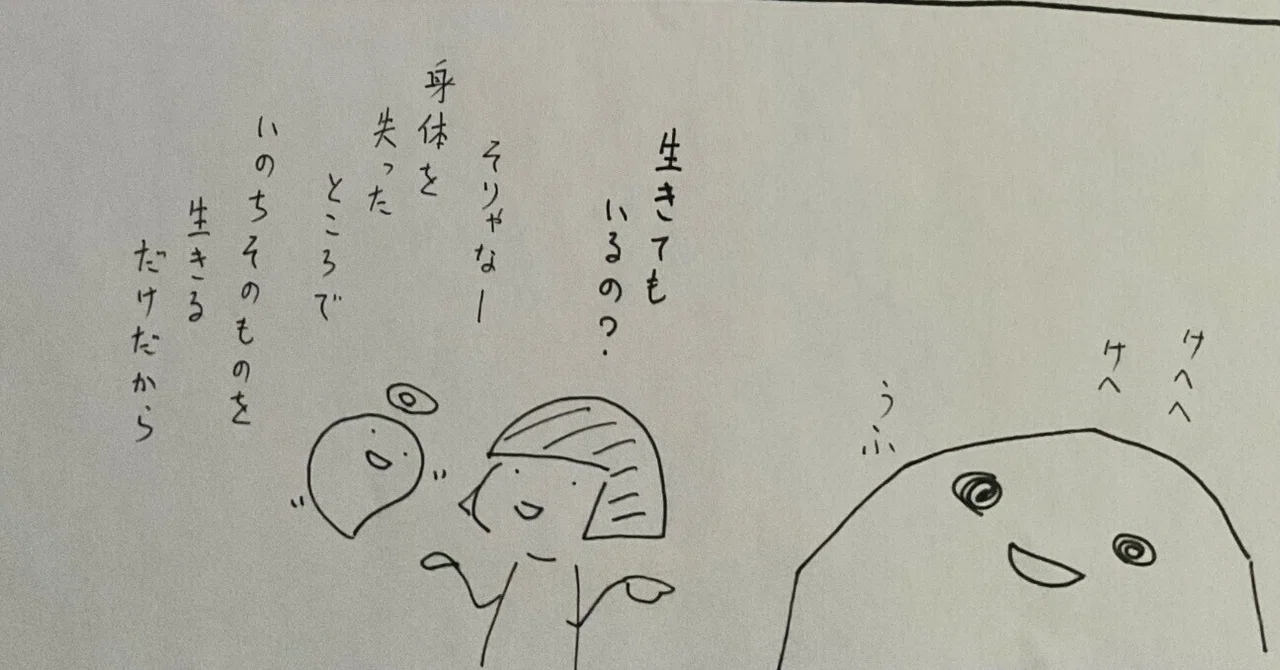 けへへ
けへ
うふ
生きても
いるの？
そりゃなー
身体を
失った
ところで
いのちそのものを
生きる
だけだから